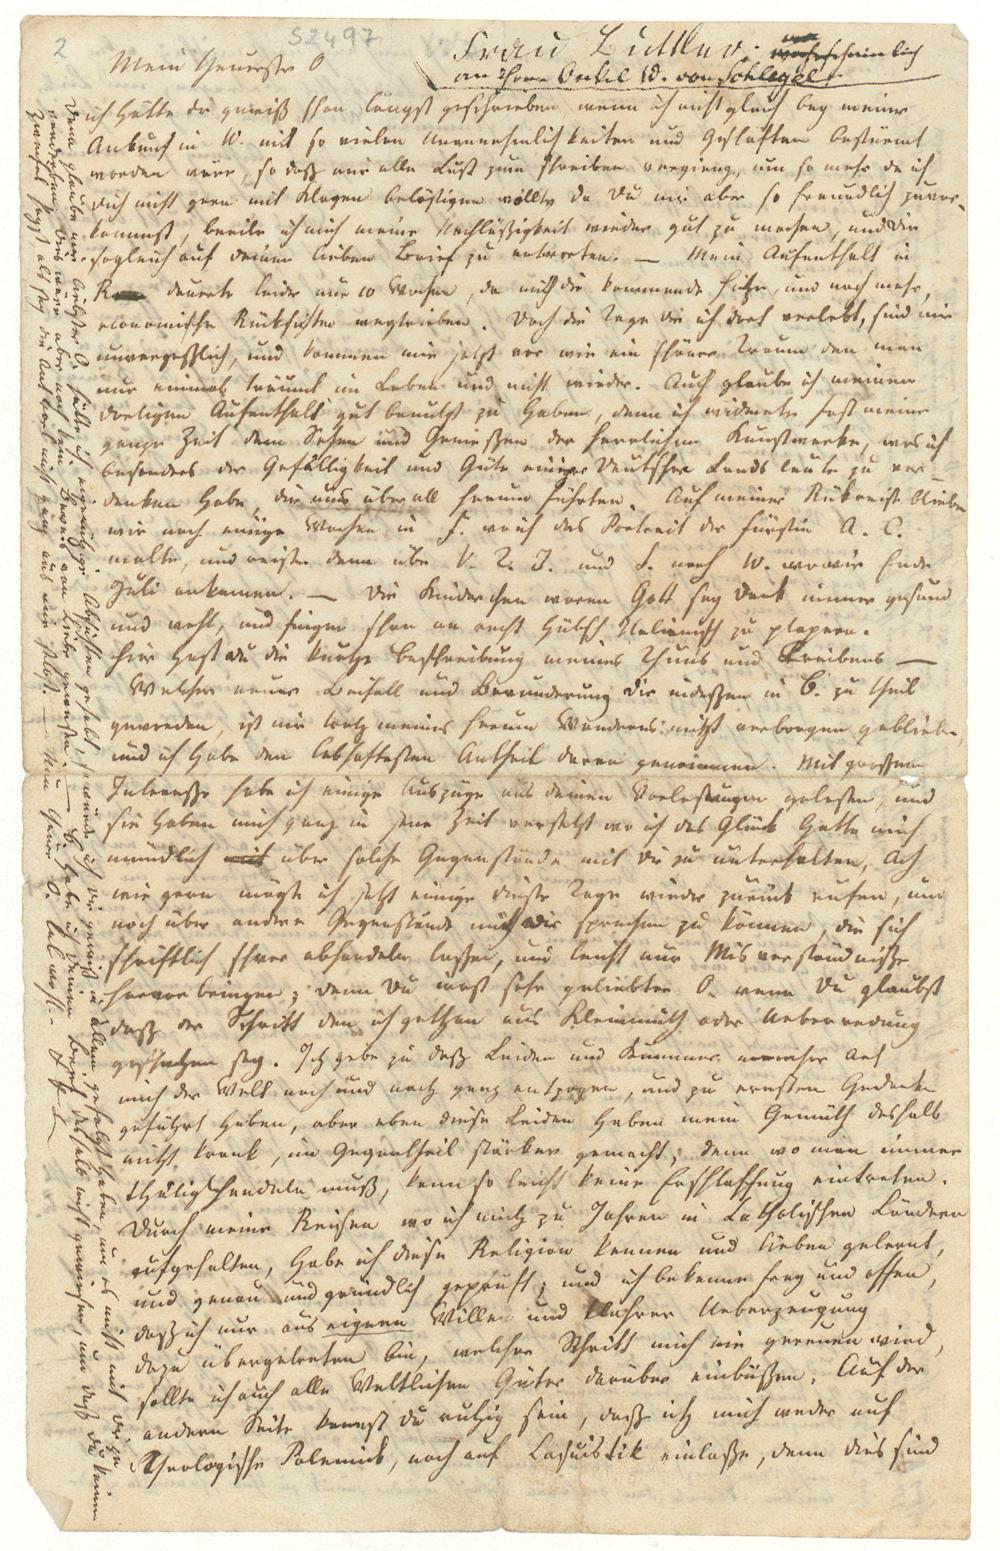 2
S2497
Frau Buttlar. wahrscheinlich
an ihren Onkel W. von Schlegel.
Mein theuerster O
ich hätte dir gewiß schon längst geschrieben wenn ich nicht gleich bey meiner
Ankunft in W. mit so vielen Unannehmlichkeiten und Geschäften bestürmt
worden wäre, so daß mir alle Lust zum schreiben vergieng, um so mehr da ich
dich nicht gern mit Klagen belästigen wollte da du mir aber so freundlich zuvor-
kommst, beeile ich mich meine Nachläßigkeit wieder gut zu machen, und dir
sogleich auf deinen lieben Brief zu antworten. — Mein Aufenthalt in
R dauerte leider nur 10 Wochen, da mich die kommende Hitze, und noch mehr,
economische Rücksichten wegtrieben. Doch die Tage die ich dort verlebt, sind mir
unvergeßlich, und kommen mir jetzt vor wie ein schöner Traum den man
nur einmal träumt im Leben und nicht wieder. Auch glaube ich meinen
dortigen Aufenthalt gut benutzt zu haben, denn ich widmete fast meine
ganze Zeit dem Sehen und Genießen der herrlichen Kunstwerke, was ich
besonders der Gefälligkeit und Güte einiger Deutscher Landsleute zu ver-
danken habe, die uns überall herum führten. Auf meiner Rükreise blieben
wir noch einige Wochen in F. wo ich das Portrait der Fürstin A. C.
malte, und reiste dann über V. T. I. und S. nach W. wo wir Ende
Juli ankamen. — Die Kinderchen waren Gott sey Dank immer gesund
und wohl, und fingen schon an recht hübsch Italienisch zu plapern.
Hier hast du die kurtze Beschreibung meines Thuns und Treibens —
Welcher neuer Beifall und Bewunderung dir indeßen in B. zu theil
geworden, ist mir trotz meines herum Wanderns nicht verborgen geblieben,
und ich habe den lebhaftesten Antheil daran genommen. Mit großem
Interesse habe ich einige Auszüge aus deinen Vorlesungen gelesen, und
sie haben mich ganz in jene Zeit versetzt wo ich das Glück hatte mich
mündlich über solche Gegenstände mit dir zu unterhalten, Ach
wie gern mögte ich jetzt einige dieser Tage wieder zurück rufen, um
noch über andere Gegenstände mit dir sprechen zu können, die sich
schriftlich schwer abhandeln lassen, und leicht nur Misverständniße
hervorbringen; denn du irrst sehr geliebter O. wenn du glaubst
daß der Schritt den ich gethan aus Kleinmuth oder Ueberredung
geschehen sey. Ich gebe zu daß Leiden und Kummer mancher Art
mich der Welt nach und nach ganz entzogen, und zu ernsten Gedanken
geführt haben, aber eben diese Leiden haben mein Gemüth deshalb
nicht krank, im Gegentheil stärker gemacht; denn wo man immer
thätig handeln muß, kann so leicht keine Erschlaffung eintreten.
Durch meine Reisen wo ich mich zu Jahren in Katholischen Ländern
aufgehalten, habe ich diese Religion kennen und lieben gelernt,
und genau und gründlich geprüft; und ich bekenne frey und offen,
daß ich nur aus eignem Willen und wahrer Ueberzeugung
dazu übergetreten bin, welcher Schritt mich nie gereuen wird,
sollte ich auch alle Weltlichen Güter darüber einbüßen. Auf der
andern Seite kannst du ruhig sein, daß ich mich weder auf
Theologische Polemick, noch auf Casuistik einlaße, denn dies sind
Denn glaube mir liebster O. hätte ich eigennützige Absichten gehabt, so würde ich dir gewiß in allem gefolgt haben, um es nicht mit dir zu
verderben, dies wäre aber noch kein Beweis von Liebe gewesen. — C. habe ich deinen Brief deshalb nicht gewiesen, um daß du keinen
Zweifel hegst als sey die Antwort nicht ganz aus mir selbst. — Nun theurer O. leb wohl.